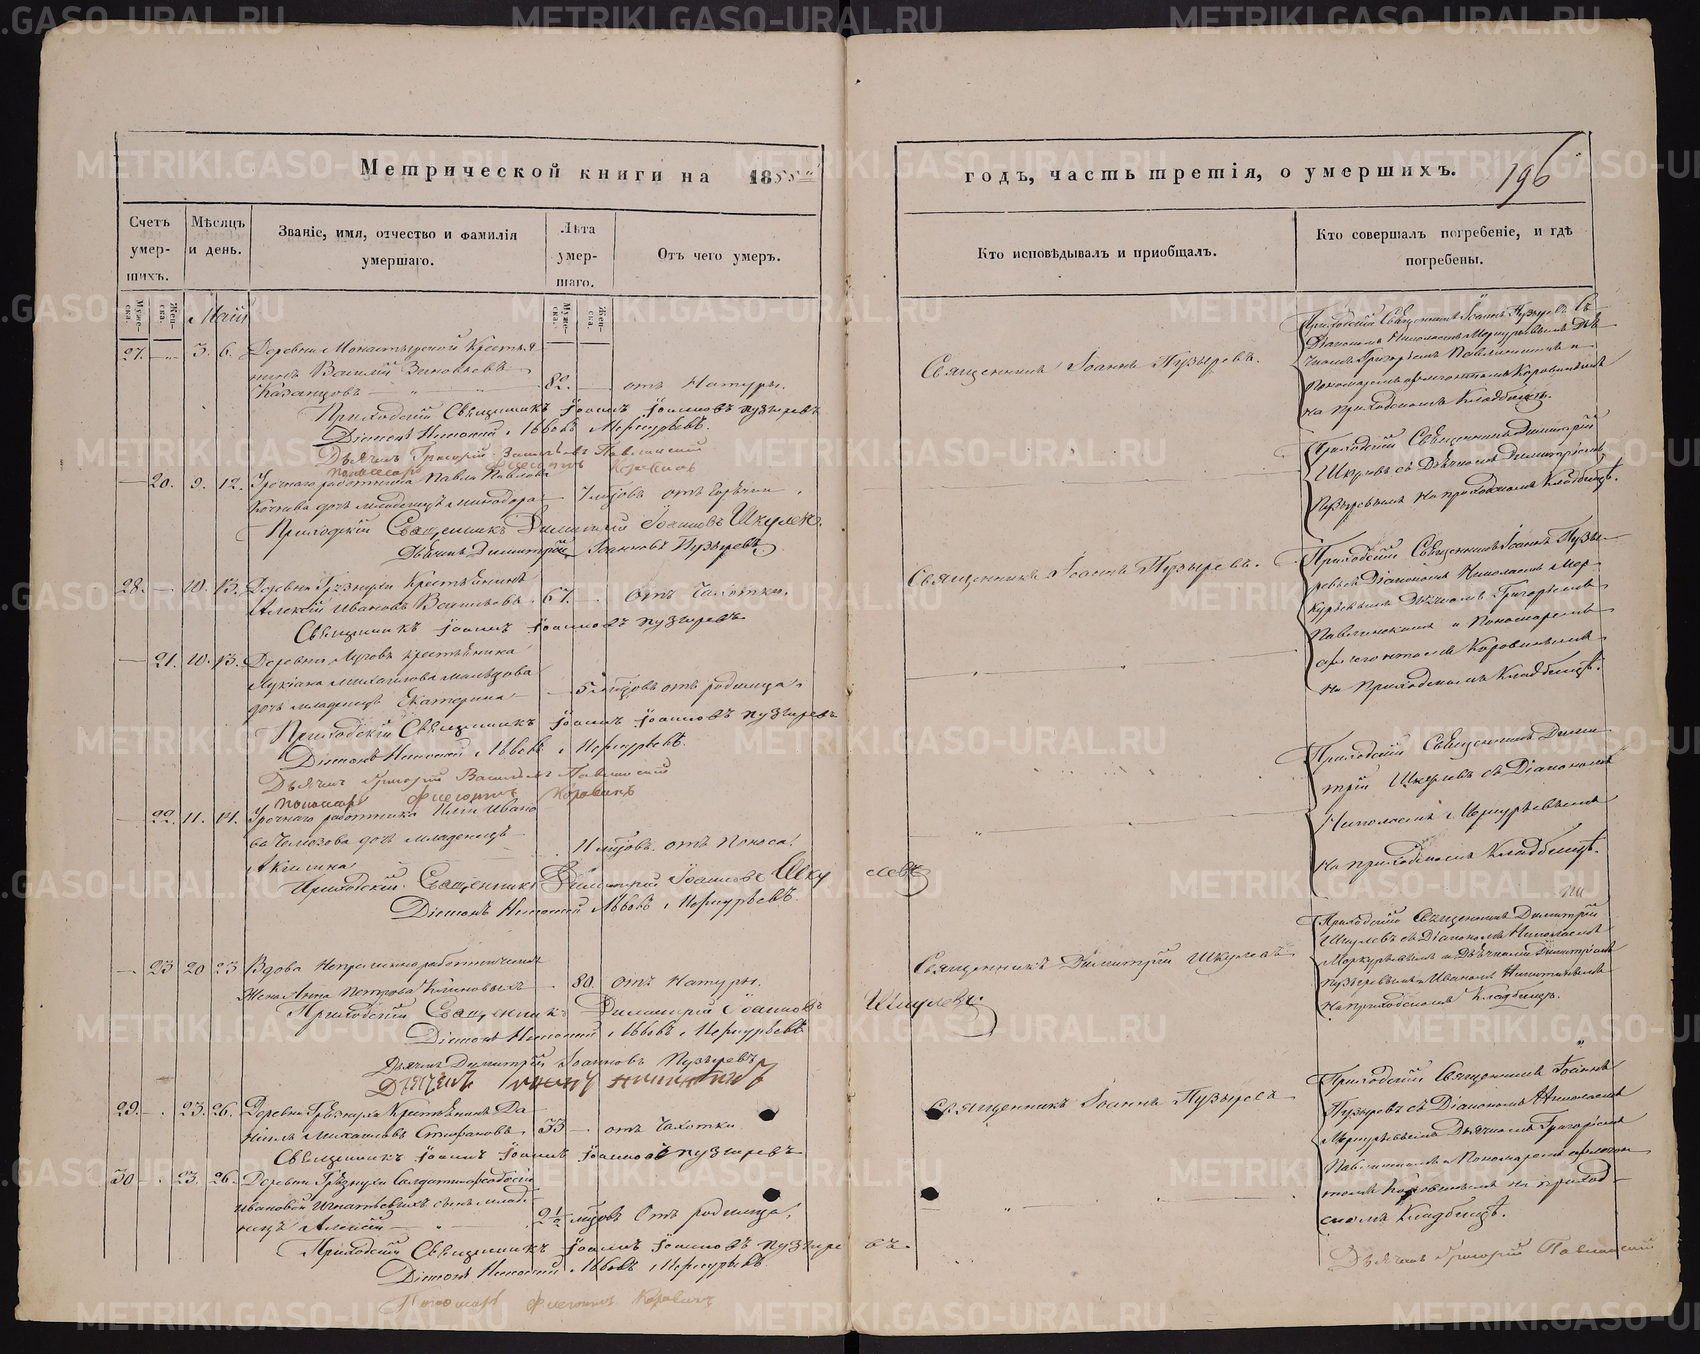 Метрической книги на 1855й
годъ, часть третія, о умершихъ. 196
Счетъ умер-шихъ.
Мѣсяцъ и день.
Званіе, имя, отчество и фамилія умершаго.
Лѣта умер-шаго.
Отъ чего умеръ.
Кто исповѣдывалъ и приобщалъ.
Кто совершалъ погребеніе, и гдѣ погребены.
Муже-ска.
Жен-ска.
Май
Муже-ска.
Жен-ска.
27. 3. 6. Деревни Монастырской Крестья
нинъ Василій Зиновьевъ
Казанцовъ 82. отъ Натуры.
Священникъ Іоаннъ Пузыревъ.
Приходскій Священникъ Іоаннъ Пузыревъ съ
Діакономъ Николаемъ Меркурьевымъ Дья
чкомъ Григорьемъ Павлинскимъ и
Пономаремъ Флегонтомъ Коровинымъ
на приходскомъ Кладбищѣ.
Приходскій Священникъ Іоаннъ Іоанновъ Пузыревъ
Діаконъ Николай Львовъ Меркурьевъ.
Дьячекъ Григорій Васильевъ Павлинскій
Пономарь Флегонтъ Коровинъ
20. 9. 12. Урочнаго работника Павла Павлова
дочь младенецъ Минодора 7 мцовъ отъ Горячки
Приходскій Священникъ Димитрій
Шкулевъ съ Дьячкомъ Димитріемъ
Пузыревымъ на приходскомъ Кладбищѣ.
Приходскій Священникъ Димитрій Іоанновъ Шкулевъ
Дьячекъ Димитрій Іоанновъ Пузыревъ
28. 10. 13. Деревни Грязнухи Крестьянинъ
Алексій Ивановъ Васильковъ 67. Отъ Чахотки.
Священникъ Іоаннъ Пузыревъ.
Приходскій Священникъ Іоаннъ Пузы-
ревъ съ Діакономъ Николаемъ Мер-
курьевымъ Дьячкомъ Григорьемъ
Павлинскимъ и Пономаремъ
Флегонтомъ Коровинымъ
на Приходскомъ Кладбищѣ.
Священникъ Іоаннъ Іоанновъ Пузыревъ
21. 10. 13. Деревни крестьянина
Лукіана Михаилова
дочь младенецъ Екатерина 5 мцовъ отъ родимца
Приходскій Священникъ Іоаннъ Іоанновъ Пузыревъ
Діаконъ Николай Львовъ Меркурьевъ.
Дьячекъ Григорій Васильевъ Павлинскій
Пономарь Флегонтъ Коровинъ
22. 11. 14. Урочнаго работника Ивано
ва дочь младенецъ
Акилина 11 мцовъ. отъ Поноса.
Приходскій Священникъ Дими
трій Шкулевъ съ Діакономъ
Николаемъ Меркурьевымъ
на приходскомъ Кладбищѣ.
Приходскій Священникъ Димитрій Іоанновъ Шку левъ
Діаконъ Николай Львовъ Меркурьевъ.
23 20 23 Вдова Непремѣннаго работника
Жена Анна Петрова 80. отъ Натуры.
Священникъ Димитрій Шкулевъ
Приходскій Священникъ Димитрій
Шкулевъ съ Діакономъ Николаемъ
Меркурьевымъ и Дьячками Димитріемъ
Пузыревымъ и Иваномъ Никитинымъ
на приходскомъ Кладбищѣ.
Приходскій Священникъ Димитрій Іоанновъ Шкулевъ
Діаконъ Николай Львовъ Меркурьевъ
Дьячекъ Димитрій Іоанновъ Пузыревъ
Дьячекъ Иванъ Никитинъ
29. 23. 26. Деревни Грязнухи Крестьянинъ Да-
ніилъ Михаиловъ 33 отъ Чахотки
Священникъ Іоаннъ Пузыревъ
Приходскій Священникъ Іоаннъ
Пузыревъ съ Діакономъ Николаемъ
Меркурьевымъ Дьячкомъ Григорьемъ
Павлинскимъ и Пономаремъ Флегон-
томъ Коровинымъ на приход-
скомъ Кладбищѣ.
Священникъ Іоаннъ Іоанновъ Пузыревъ
30 23. 26. Деревни Грязнухи Солдатки
Ивановой Игнатьевыхъ сынъ млад-
нецъ Алексій 2½ мцовъ Отъ родимца.
Приходскій Священникъ Іоаннъ Іоанновъ Пузыре въ.
Діаконъ Николай Львовъ Меркурьевъ.
Дьячекъ Григорій Павлинскій
Пономарь Флегонтъ Коровинъ
METRIKI.GASO-URAL.RU